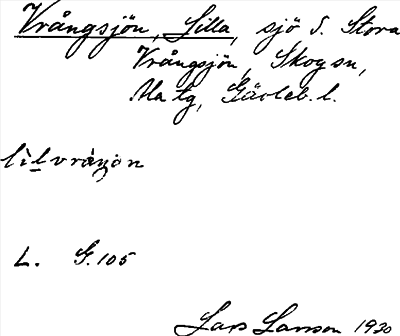 Vrångsjön, Lilla, sjö S. Stora
Vrångsjön, Skog sn,
Ala tg, Gävleb. l.
L. G. 105
Lars Larson 1930